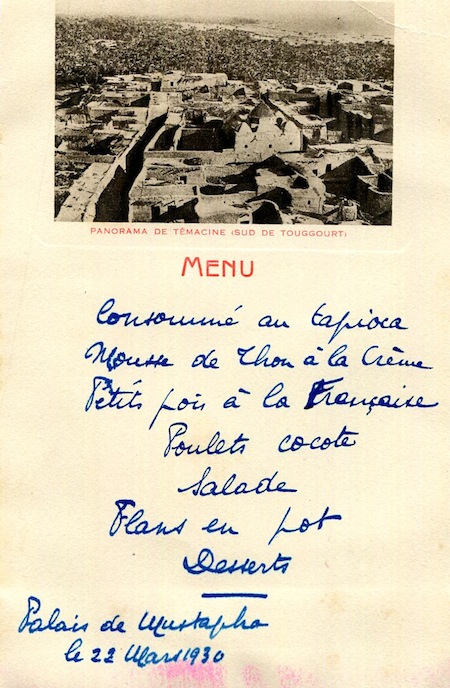 PANORAMA DE TÉMACINE (SUD DE TOUGGOURT)
MENU
Consommé au tapioca
Mousse de Thon à la Crème
Petits pois à la Française
Poulets cocote
Salade
Flans en pot
Desserts
Palais de Mustapha
le 22 Mars 1930